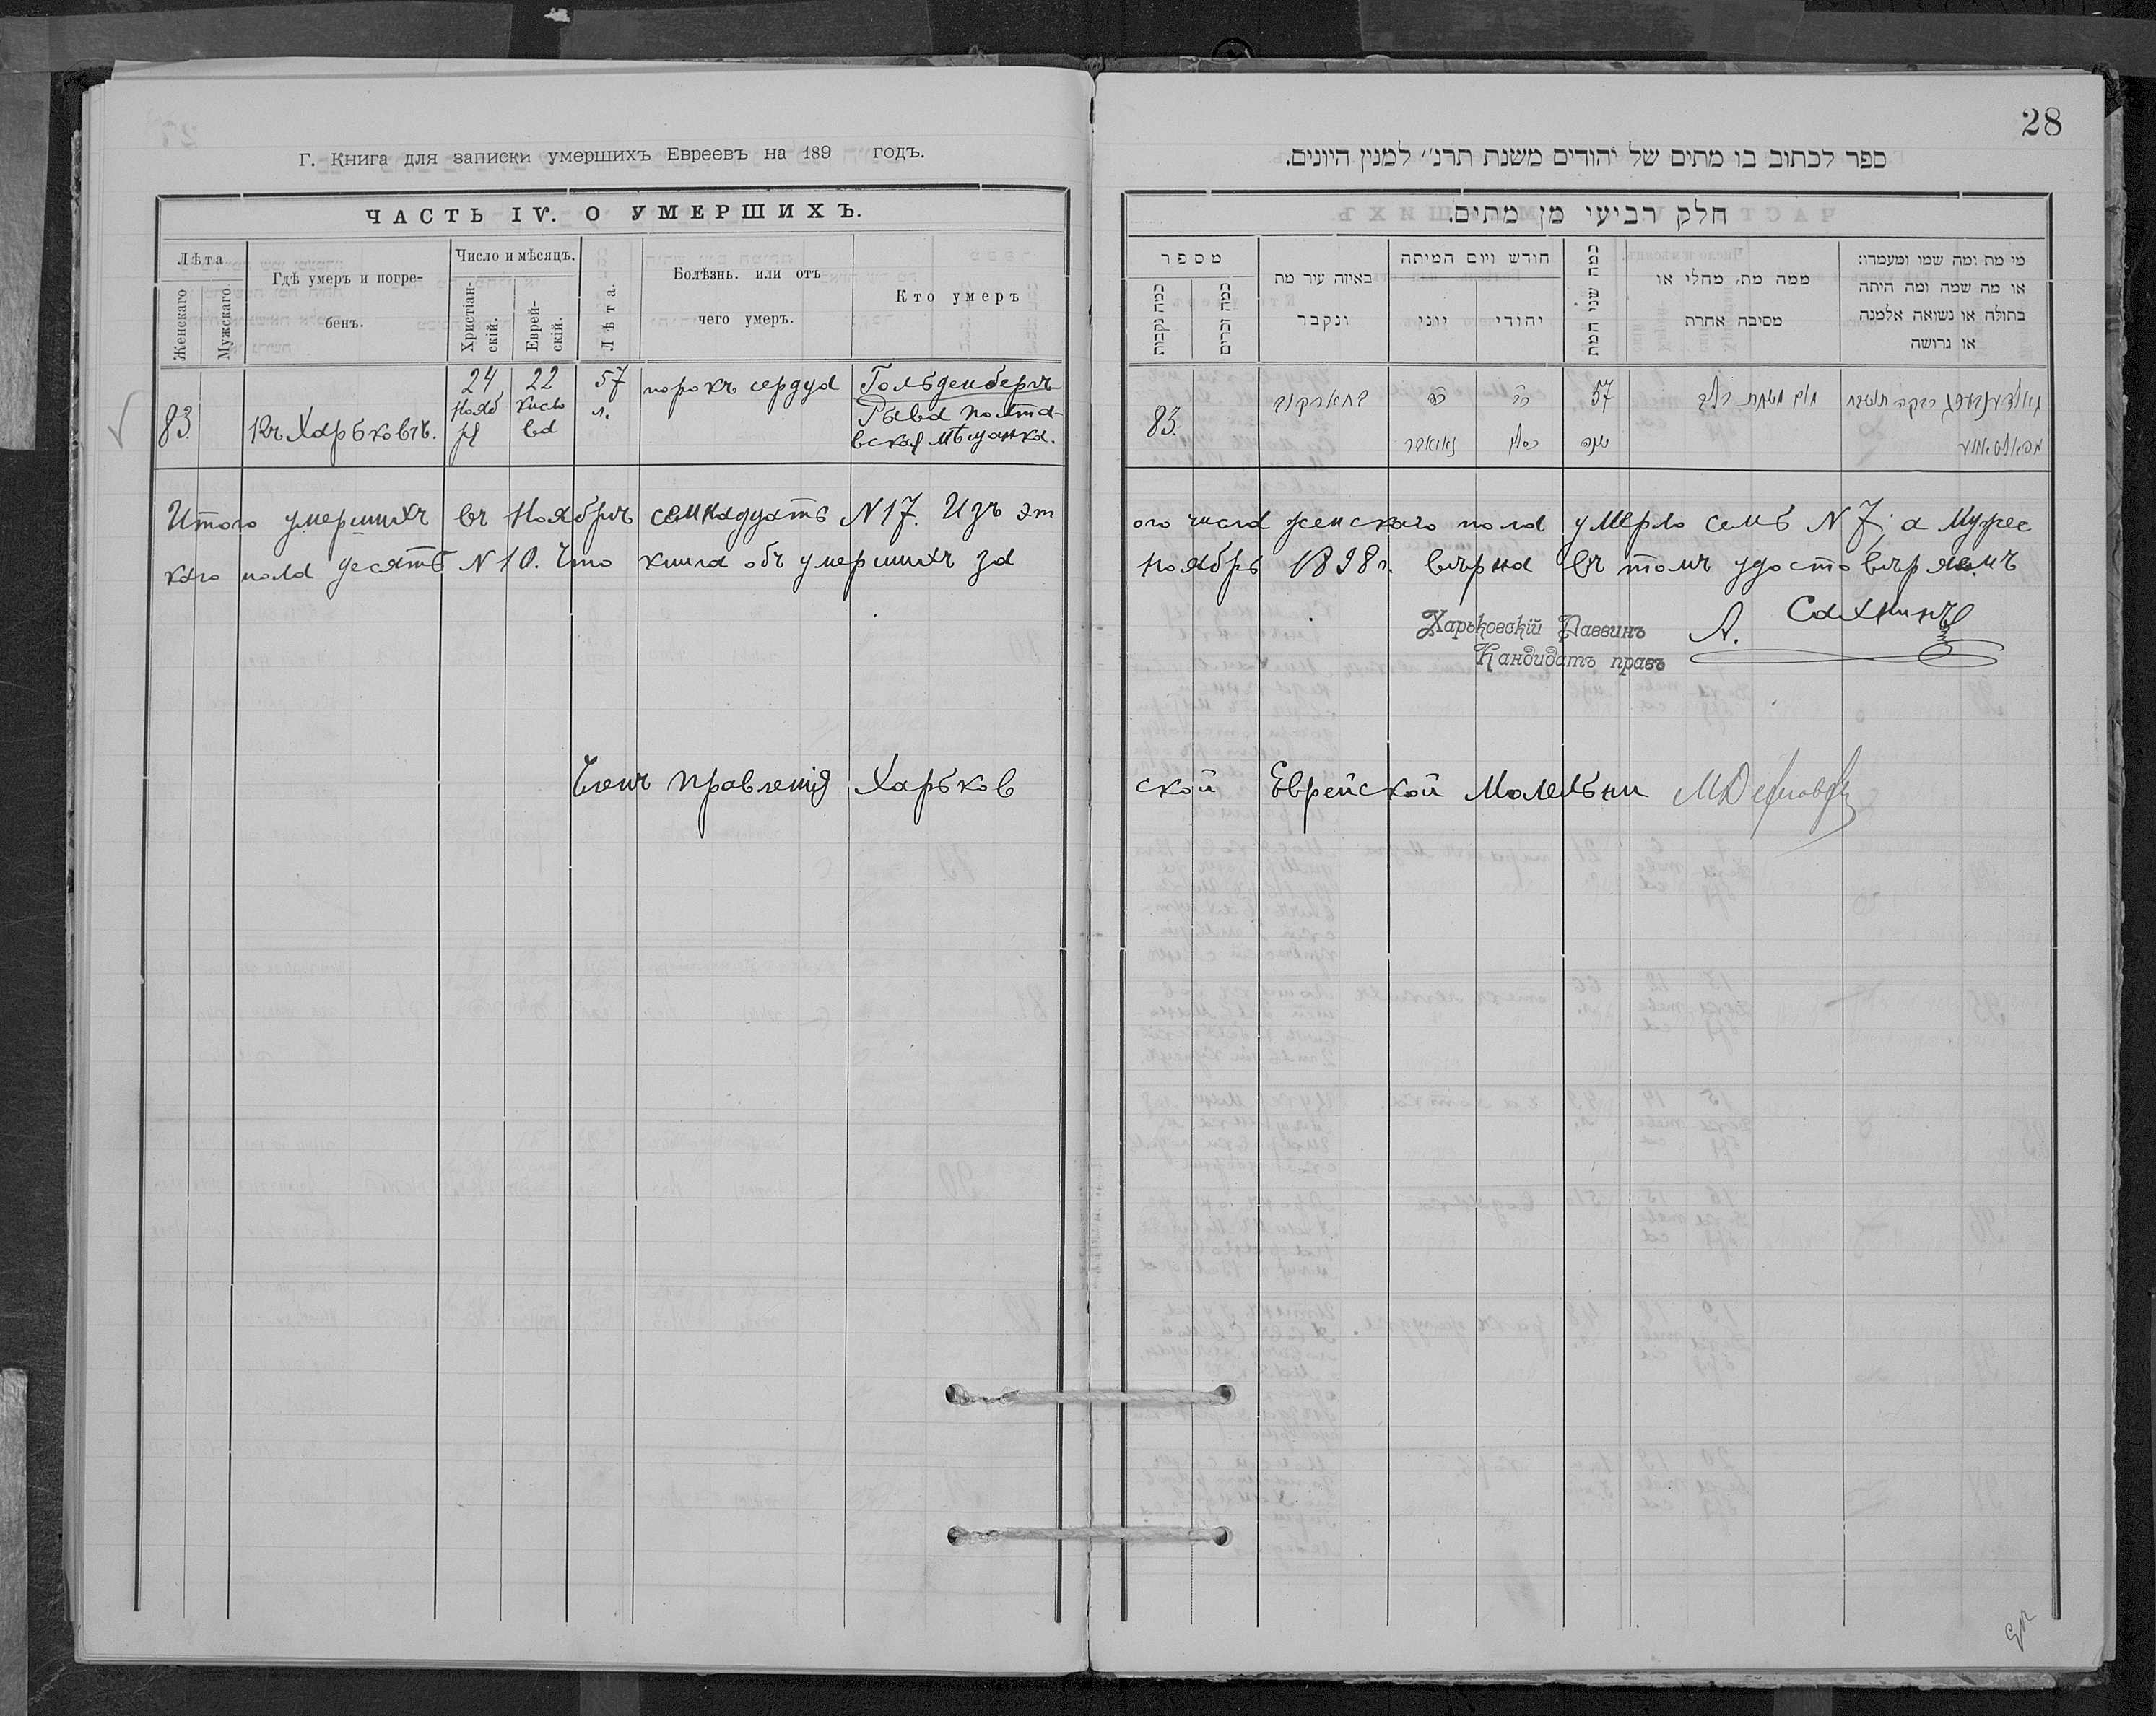 Г. Книга для записки умершихъ Евреевъ на 189 годъ.
ЧАСТЬ IV. О УМЕРШИХЪ.
Лѣта
Женскаго
Мужскаго
Гдѣ умеръ и погре-
бенъ.
Число и мѣсяцъ.
Христіан-
скій.
Еврей-
скій.
Лѣта.
Болѣзнь. или отъ
чего умеръ.
Кто умеръ
83
Въ Харьковѣ.
24
Нояб
ря
22
Кисле
ва
57
л.
порокъ сердца
Гольденбергъ
Рыва Полта-
вская мѣщанка.
28
ספר לכתוב בו מתים של יהודים משנת תרנ״ למנין היונים.
חלק רביעי מן מתים.
מספר
כמה נקבות
כמה זכרים
באיזה עיר מת
ונקבר
חודש ויום המיתה
יוני
יהודי
כמה שני המת
ממה מת, מחלי או
מסיבה אחרת
מי מת ומה שמו ומעמדו:
או מה שמה ומה היתה
בתולה או נשואה אלמנה
או גרושה
83.
בחארקוב
כד
נאואבר
כב
כסלו
57
שנה
גאלדענבערג רבקה
Итого умершихъ въ Ноябрѣ семнадцать N 17. Изъ этого числа женскаго пола умерло семь N 7, а мужес
каго пола десять N 10. Что книга объ умершихъ за Ноябрь 1898 г. вѣрна въ томъ удостовѣряемъ
Харьковскій Раввинъ
Кандидатъ правъ
А. Сахнинъ
Членъ Правленія Харьковской Еврейской Молельни